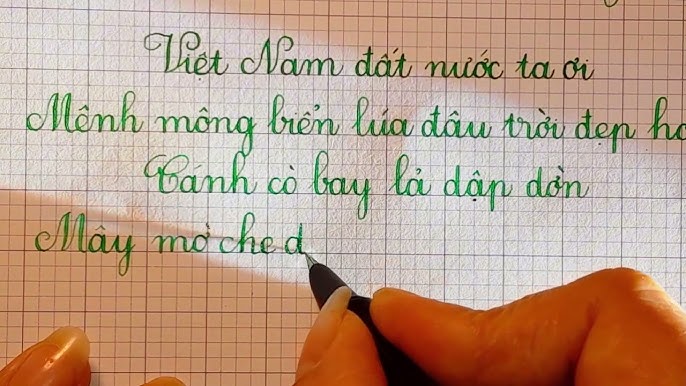 Việt Nam đất nước ta ơi
Mênh mông biển lúa đâu trời đẹp hơ
Cánh cò bay lả dập dờn
Mây mờ che d